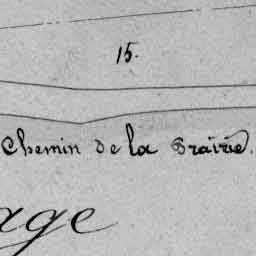 15.
Chemin de la Prairie.
age